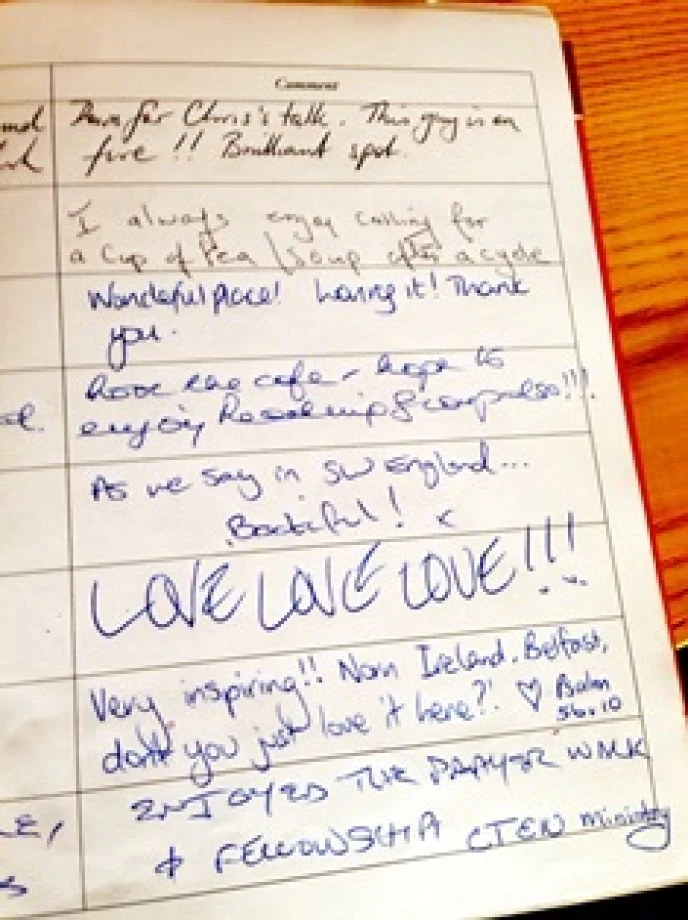 Comment
for Chris's talk. This guy is on
fire!! Brilliant spot.
I always enjoy calling for
a cup of Tea / Soup after a cycle
Wonderful place! Loving it! Thank
you.
Love the cafe - hope to
enjoy
As we say in SW England...
! x
LOVE LOVE LOVE!!!
Very inspiring!! Norn Ireland. Belfast,
don't you just love it here?! ♡ Psalm
56.10
ENJOYED THE PRAYER WALK
& FELLOWSHIP CTEN Ministry